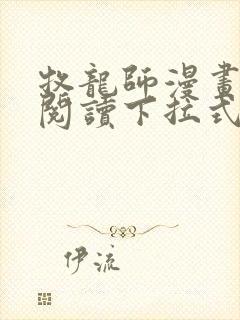 牧龍師漫畫
閱讀下拉式
伊流